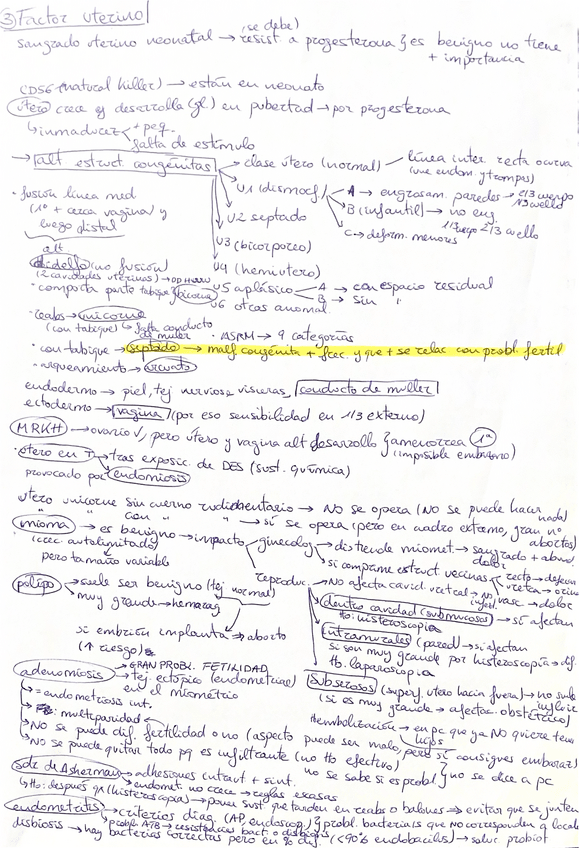 ③ Factor uterino
sangrado uterino neonatal → (se debe) resist. a progesterona } es benigno no tiene + importancia
CD56 (natural killer) → están en neonato
útero crece y desarrolla (gl.) en pubertad → por progesterona
↳ inmadurez + peq.
falta de estímulo
→ alt estruct congénitas → clase útero (normal) línea inter. recta o curva
(une endom. y trompas)
• fusión línea med
(1º + cerca vagina) y
luego distal
U1 (dismorf) A → engrosam. paredes → 2/3 cuerpo 1/3 cuello
B (infantil) → no eng.
1/3 cuerpo 2/3 cuello
C → deform. menores
U2 septado
U3 (bicorporeo)
U4 (hemiutero)
U5 aplásico A → con espacio residual
B → sin "
U6 otras anomal.
alt
didelfo (no fusión)
(2 cavidades uterinos)
• comparta parte tabique bicorne
• unicorne
(con tabique) falta conducto
de muller
• ASRM → 9 categorías
• con tabique → septado → malf congénita + frec. y que + se relac con probl. fertil
• arqueamiento → arcuato
endodermo → piel, tej nervioso, visceras, conducto de muller
ectodermo → vagina (por eso sensibilidad en 1/3 externo)
MRKH → ovario √, pero útero y vagina alt desarrollo } amenorrea 1ª
(imposible embarazo)
• útero en T → tras exposic. de DES (sust. química)
provocado por endomiosis
útero unicorne sin cuerno rudimentario → NO se opera (No se puede hacer nada)
" " con " " → sí se opera (pero en cuadro extremo, gran nº abortos)
mioma → es benigno → impacto ginecolog distiende miomet. → sangrado + abun.
dolor
(crec. autolimitado)
pero tamaño variable
si comprime estruct vecinas recto → defecan
uretra → orina
vasc → dolor
reproduc. → No afecta cavid. uterina → no infert.
dentro cavidad (submucosos) → sí afectan
tto. histeroscopia
intramurales (pared) → si afectan
si son muy grande por histeroscopia → dif.
tto. laparoscopia
subserosos (superf. utero hacia fuera) → no suele influir
(si es muy grande → afectac. obstétrica)
pólipo → suele ser benigno (tej normal)
muy grande → hemorrag
si embrión implanta → aborto
(↑ riesgo)
adenomiosis → GRAN PROBL. FETILIDAD
tej. ectópico (endometrial)
en el miometrio
↳ = endometriosis int.
multiparidad
embolización → en pc que ya NO quiere tener hijos
↳ NO se puede dif. fertilidad o no (aspecto puede ser malo, pero sí consigues embarazo)
↳ No se puede quitar todo pq es infiltrante (no tto efectivo)
no se sabe si es probl } no se dice a pc
sdr de Asherman → adhesiones intraut + sint.
endomet. no crece → reglas escasas
↳ tto: después qx (histeroscopia) → poner sust que tarden en reabs o balones → evitar que se junten
endometritis → criterios diag. (AP, endoscop.) } probl. bacterias que no corresponden a localiz
probl. ATB → resistencias bact. o disbiosis
disbiosis → hay bacterias correctas pero en % dif. (<90% endobacilos) → soluc. probiót